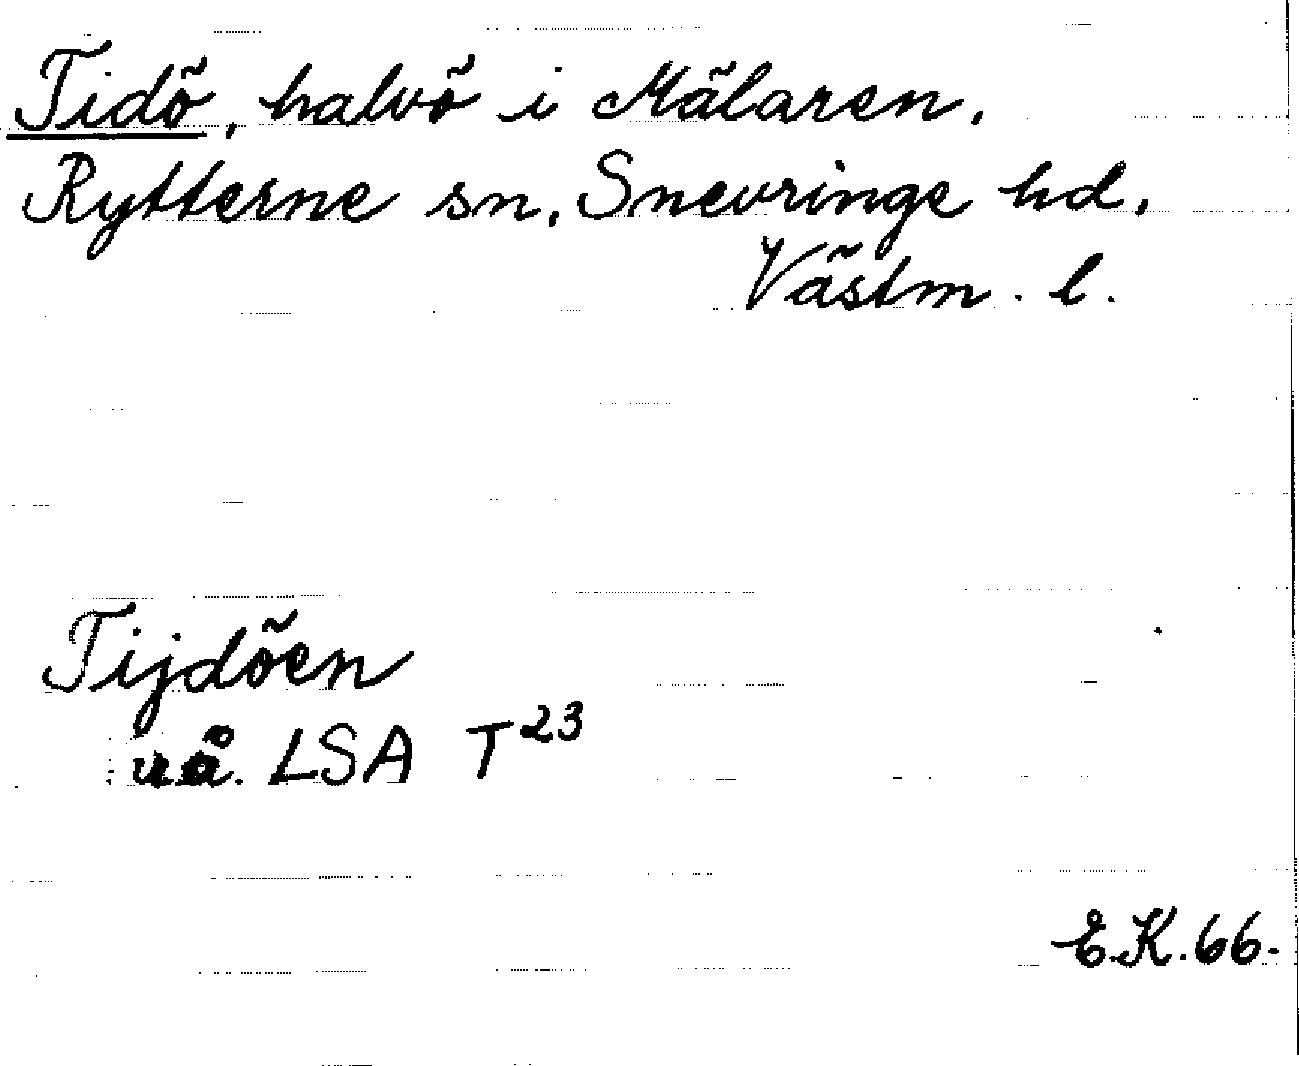 Tidö, halvö i Mälaren.
Rytterne sn, Snevringe hd,
Västm. l.
Tijdöen
uå. LSA T²³
E.K.66.